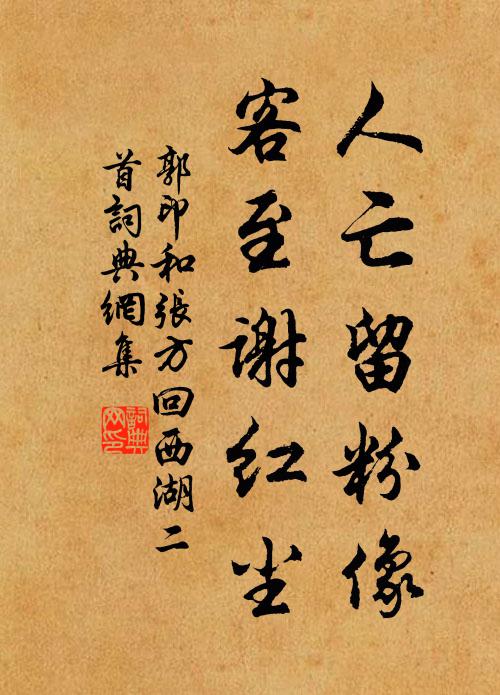 人亡留粉像
客至谢红尘
郭印和張方回西湖二
首詞典網集
詞典
网印